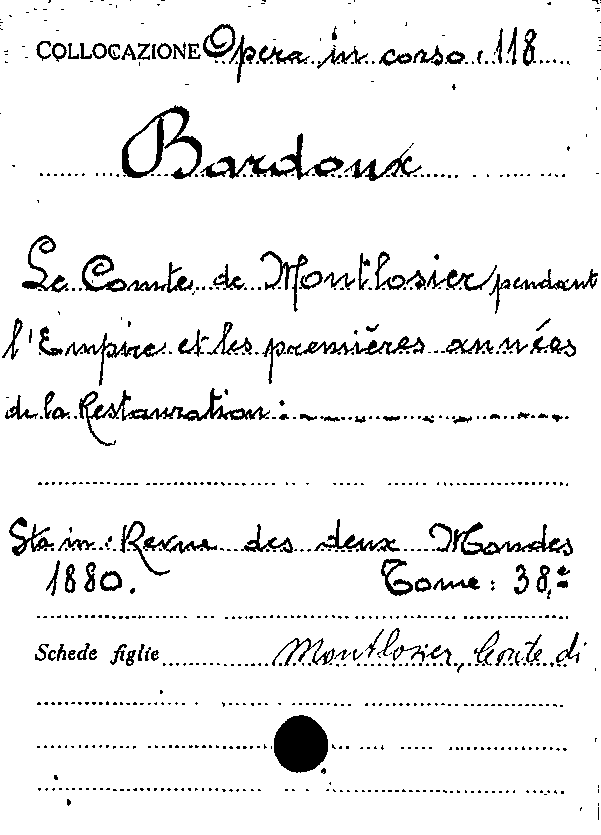 COLLOCAZIONE Opera in corso. 118
Bardoux
Le Comte de Montlosier pendant
l'Empire et les premières années
de la Restauration:
Sta in: Revue des deux Mondes
1880. Tome: 38,e
Schede figlie Montlosier, Conte di